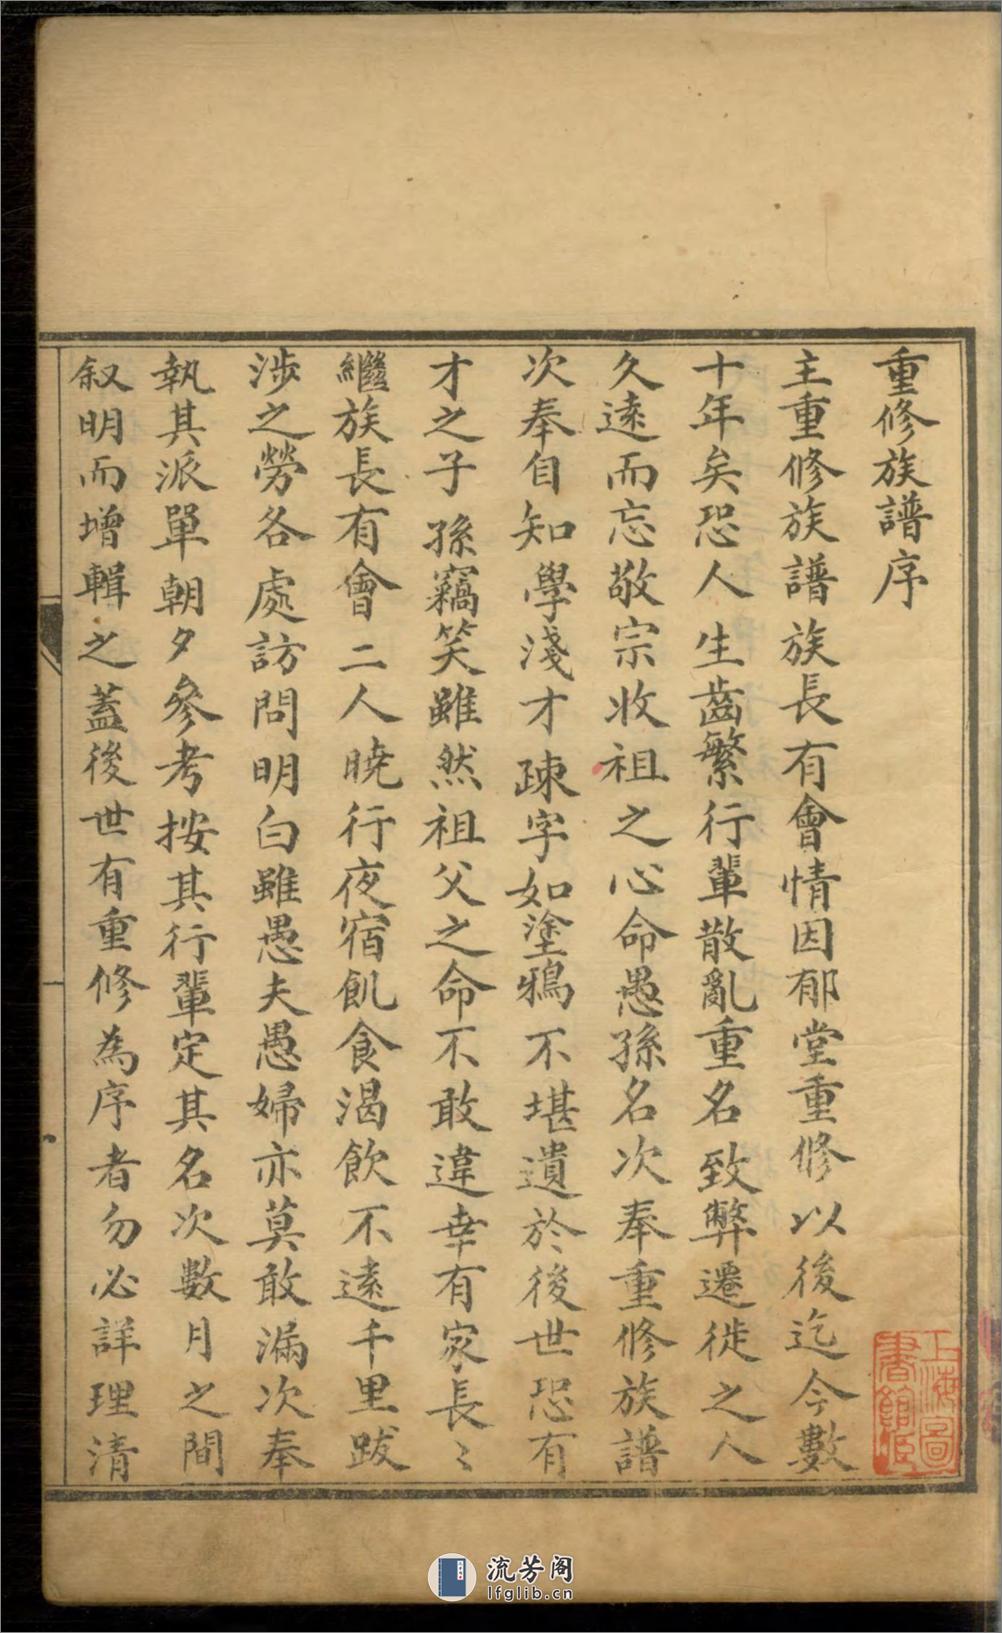 重修族譜序
主重修族譜族長有會情因郁堂重修以後迄今數
十年矣恐人生齒繁行輩散亂重名致弊遷徙之人
久遠而忘敬宗收祖之心命愚孫名次奉重修族譜
次奉自知學淺才疎字如塗鴉不堪遺於後世恐有
才之子孫竊笑雖然祖父之命不敢違幸有家長〻
繼族長有會二人曉行夜宿飢食渴飲不遠千里跋
涉之勞各處訪問明白雖愚夫愚婦亦莫敢漏次奉
執其派單朝夕參考按其行輩定其名次數月之間
叙明而增輯之蓋後世有重修為序者勿必詳理清
上海圖
書館藏
流芳阁
lfglib.cn